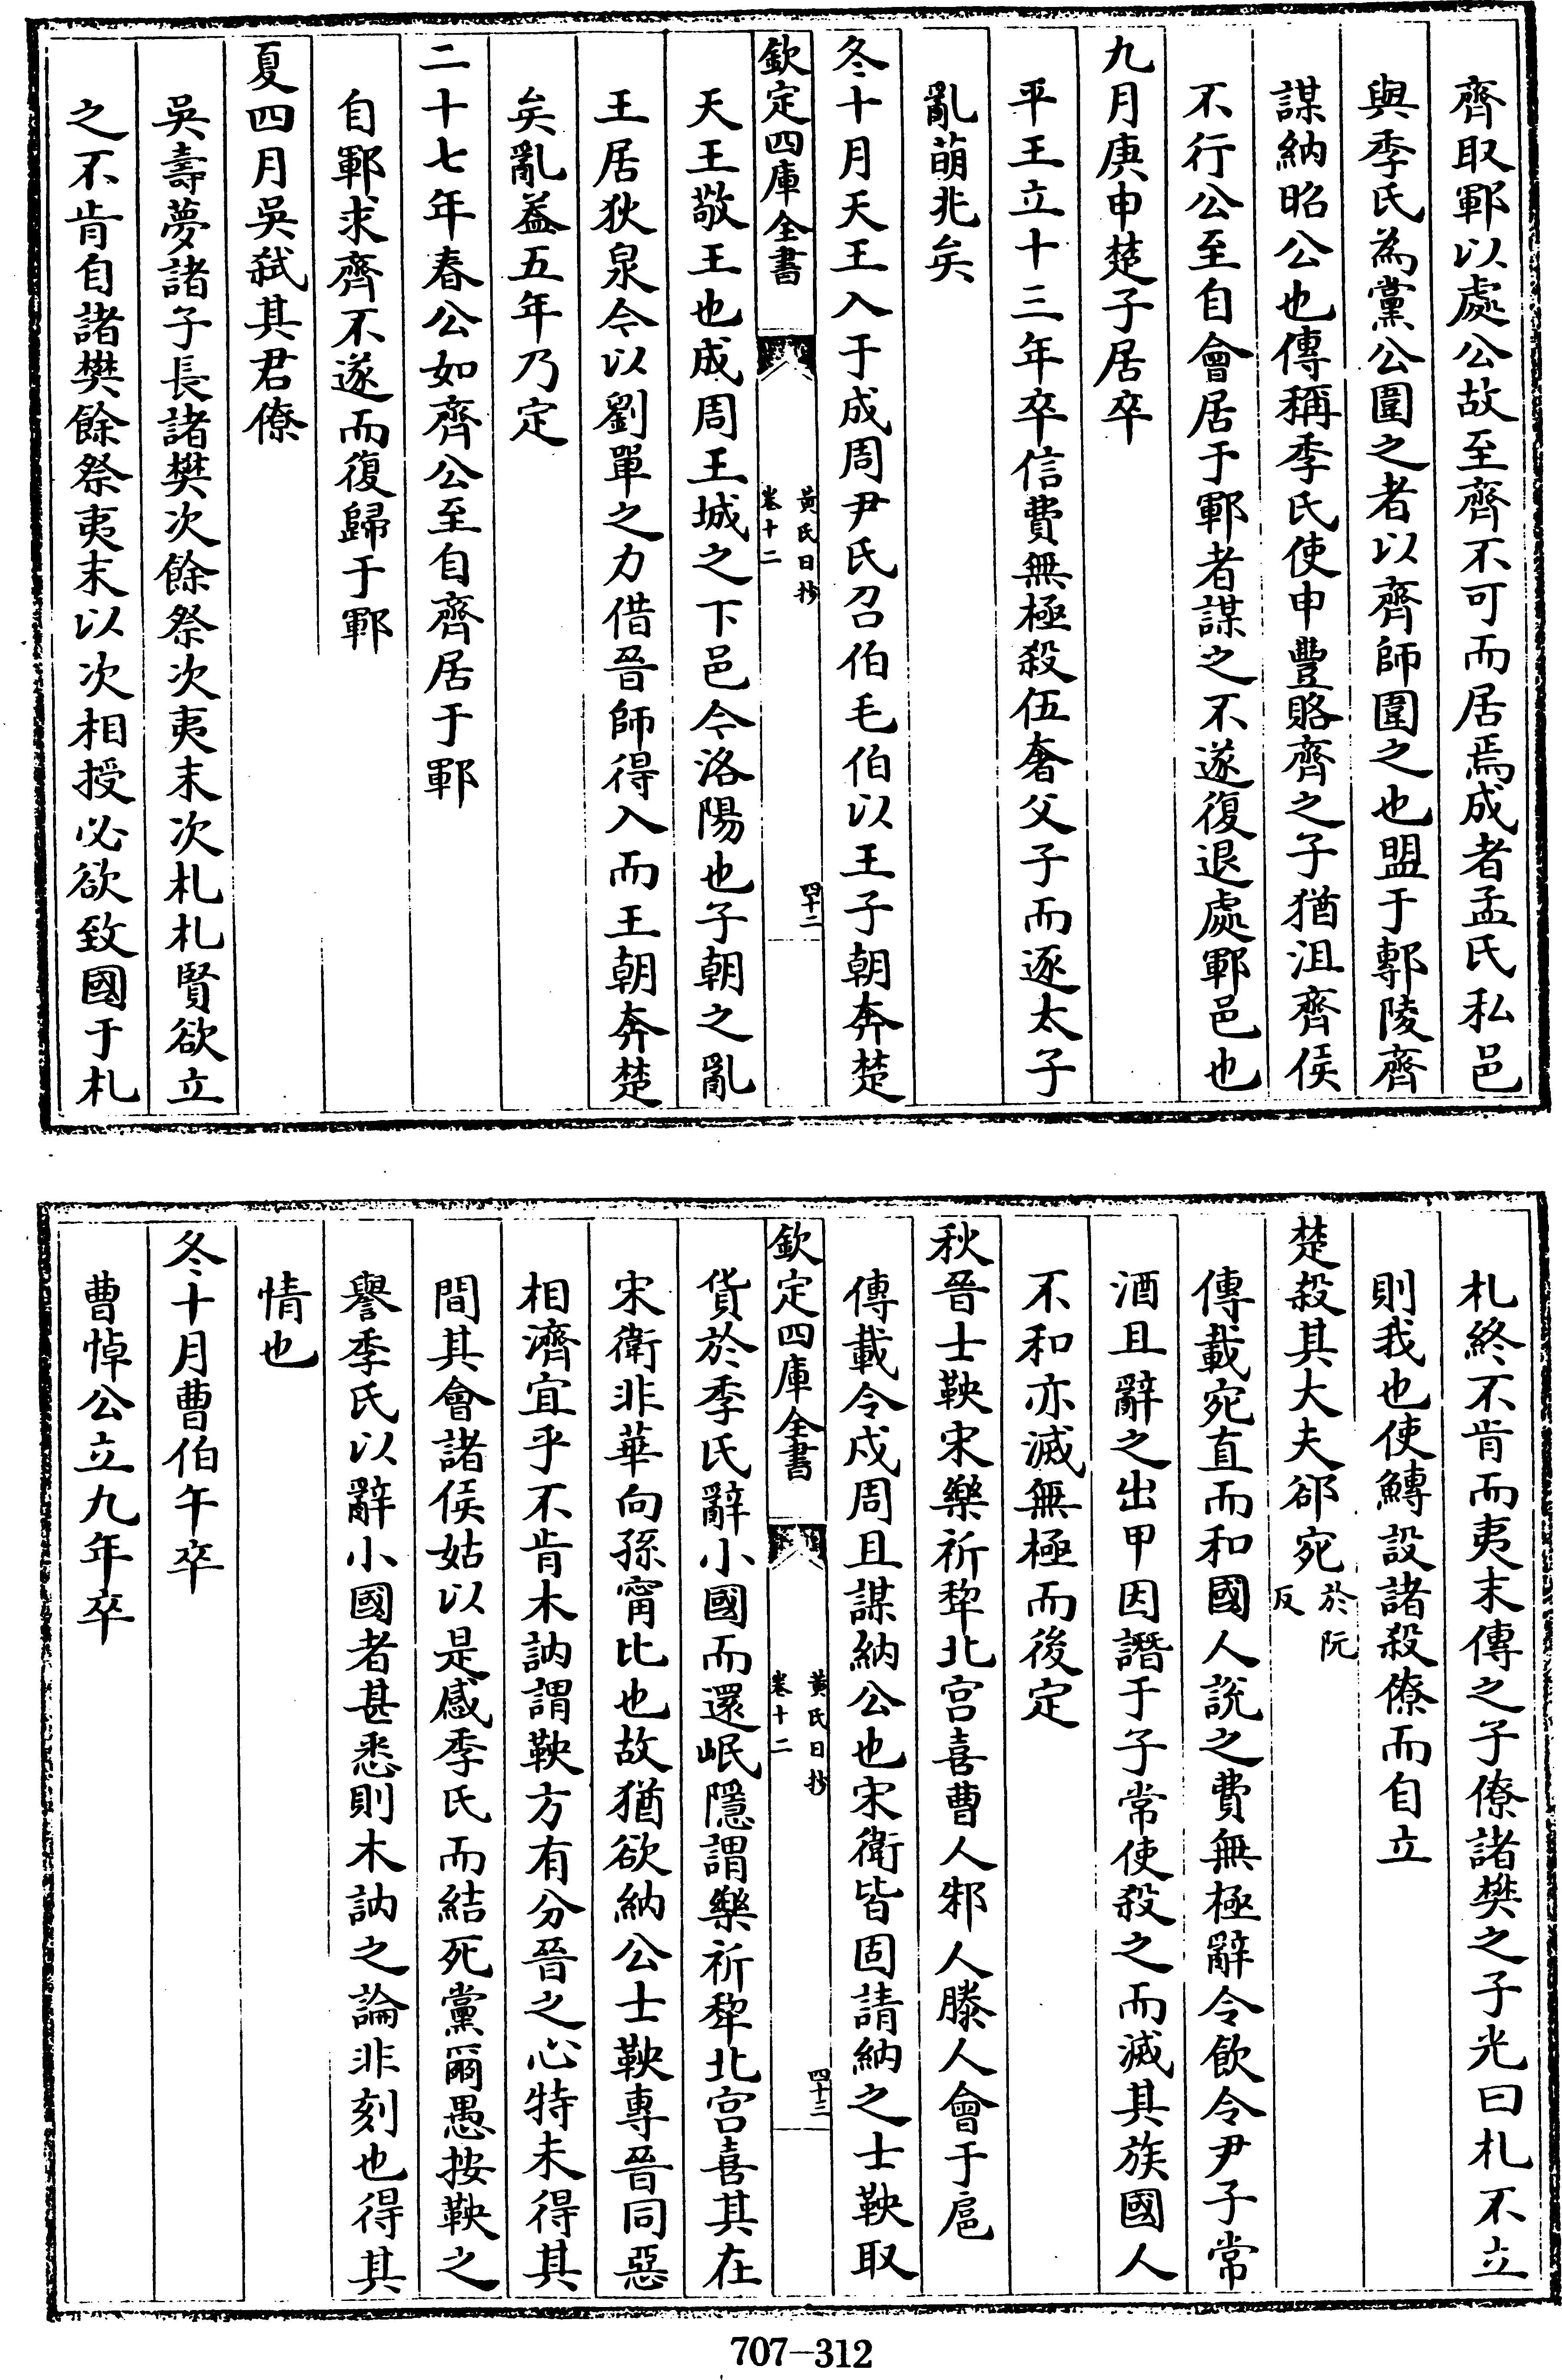 齊取鄆以處公故至齊不可而居焉成者孟氏私邑
與季氏為黨公圍之者以齊師圍之也盟于鄟陵齊
謀納昭公也傳稱季氏使申豐賂齊之子猶沮齊侯
不行公至自會居于鄆者謀之不遂復退處鄆邑也
九月庚申楚子居卒
平王立十三年卒信費無極殺伍奢父子而逐太子
亂萌兆矣
冬十月天王入于成周尹氏召伯毛伯以王子朝奔楚
欽定四庫全書
黃氏日抄
卷十二
四十二
天王敬王也成周王城之下邑今洛陽也子朝之亂
王居狄泉今以劉單之力借晉師得入而王朝奔楚
矣亂葢五年乃定
二十七年春公如齊公至自齊居于鄆
自鄆求齊不遂而復歸于鄆
夏四月吳弒其君僚
吳壽夢諸子長諸樊次餘祭次夷末次札札賢欲立
之不肯自諸樊餘祭夷末以次相授必欲致國于札
札終不肯而夷末傳之子僚諸樊之子光曰札不立
則我也使鱄設諸殺僚而自立
楚殺其大夫郤宛於阮反
傳載宛直而和國人說之費無極辭令飲令尹子常
酒且辭之出甲因譖于子常使殺之而滅其族國人
不和亦滅無極而後定
秋晉士鞅宋樂祈犂北宮喜曹人邾人滕人會于扈
傳載令戍周且謀納公也宋衛皆固請納之士鞅取
欽定四庫全書
黃氏日抄
卷十二
四十三
貨於季氏辭小國而還岷隱謂樂祈犂北宮喜其在
宋衛非華向孫甯比也故猶欲納公士鞅專晉同惡
相濟宜乎不肯木訥謂鞅方有分晉之心特未得其
間其會諸侯姑以是感季氏而結死黨爾愚按鞅之
譽季氏以辭小國者甚悉則木訥之論非刻也得其
情也
冬十月曹伯午卒
曹悼公立九年卒
707-312